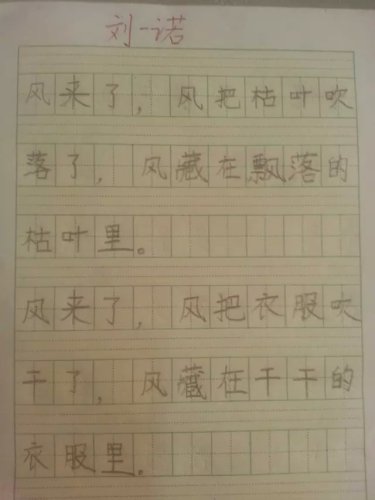 刘一诺
风来了，风把枯叶吹
落了，风藏在飘落的
枯叶里。
风来了，风把衣服吹
干了，风藏在干干的
衣服里。